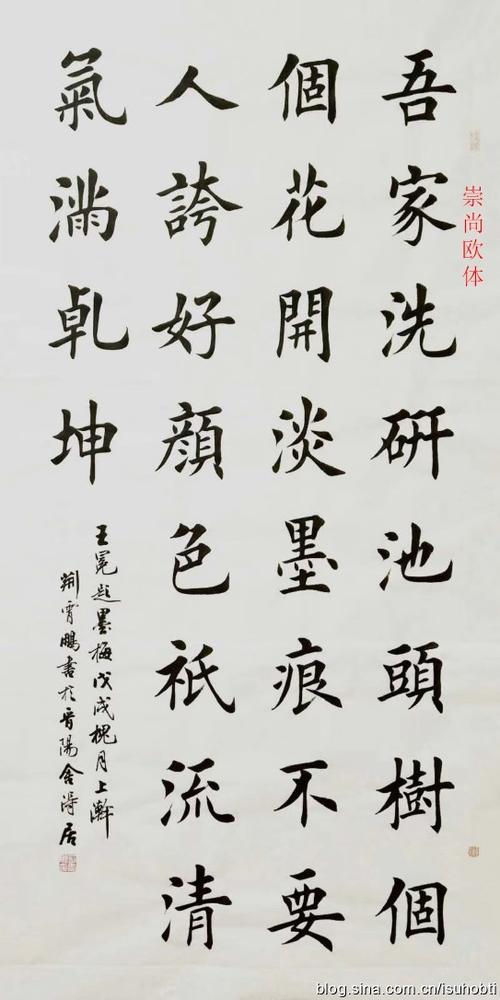 吾家洗研池頭樹個
個花開淡墨痕不要
人誇好顏色祇流清
氣滿乹坤
王冕題墨梅戊戌槐月上澣
荆霄鵬書於晉陽舍得居
崇尚欧体
blog.sina.com.cn/isuhobti